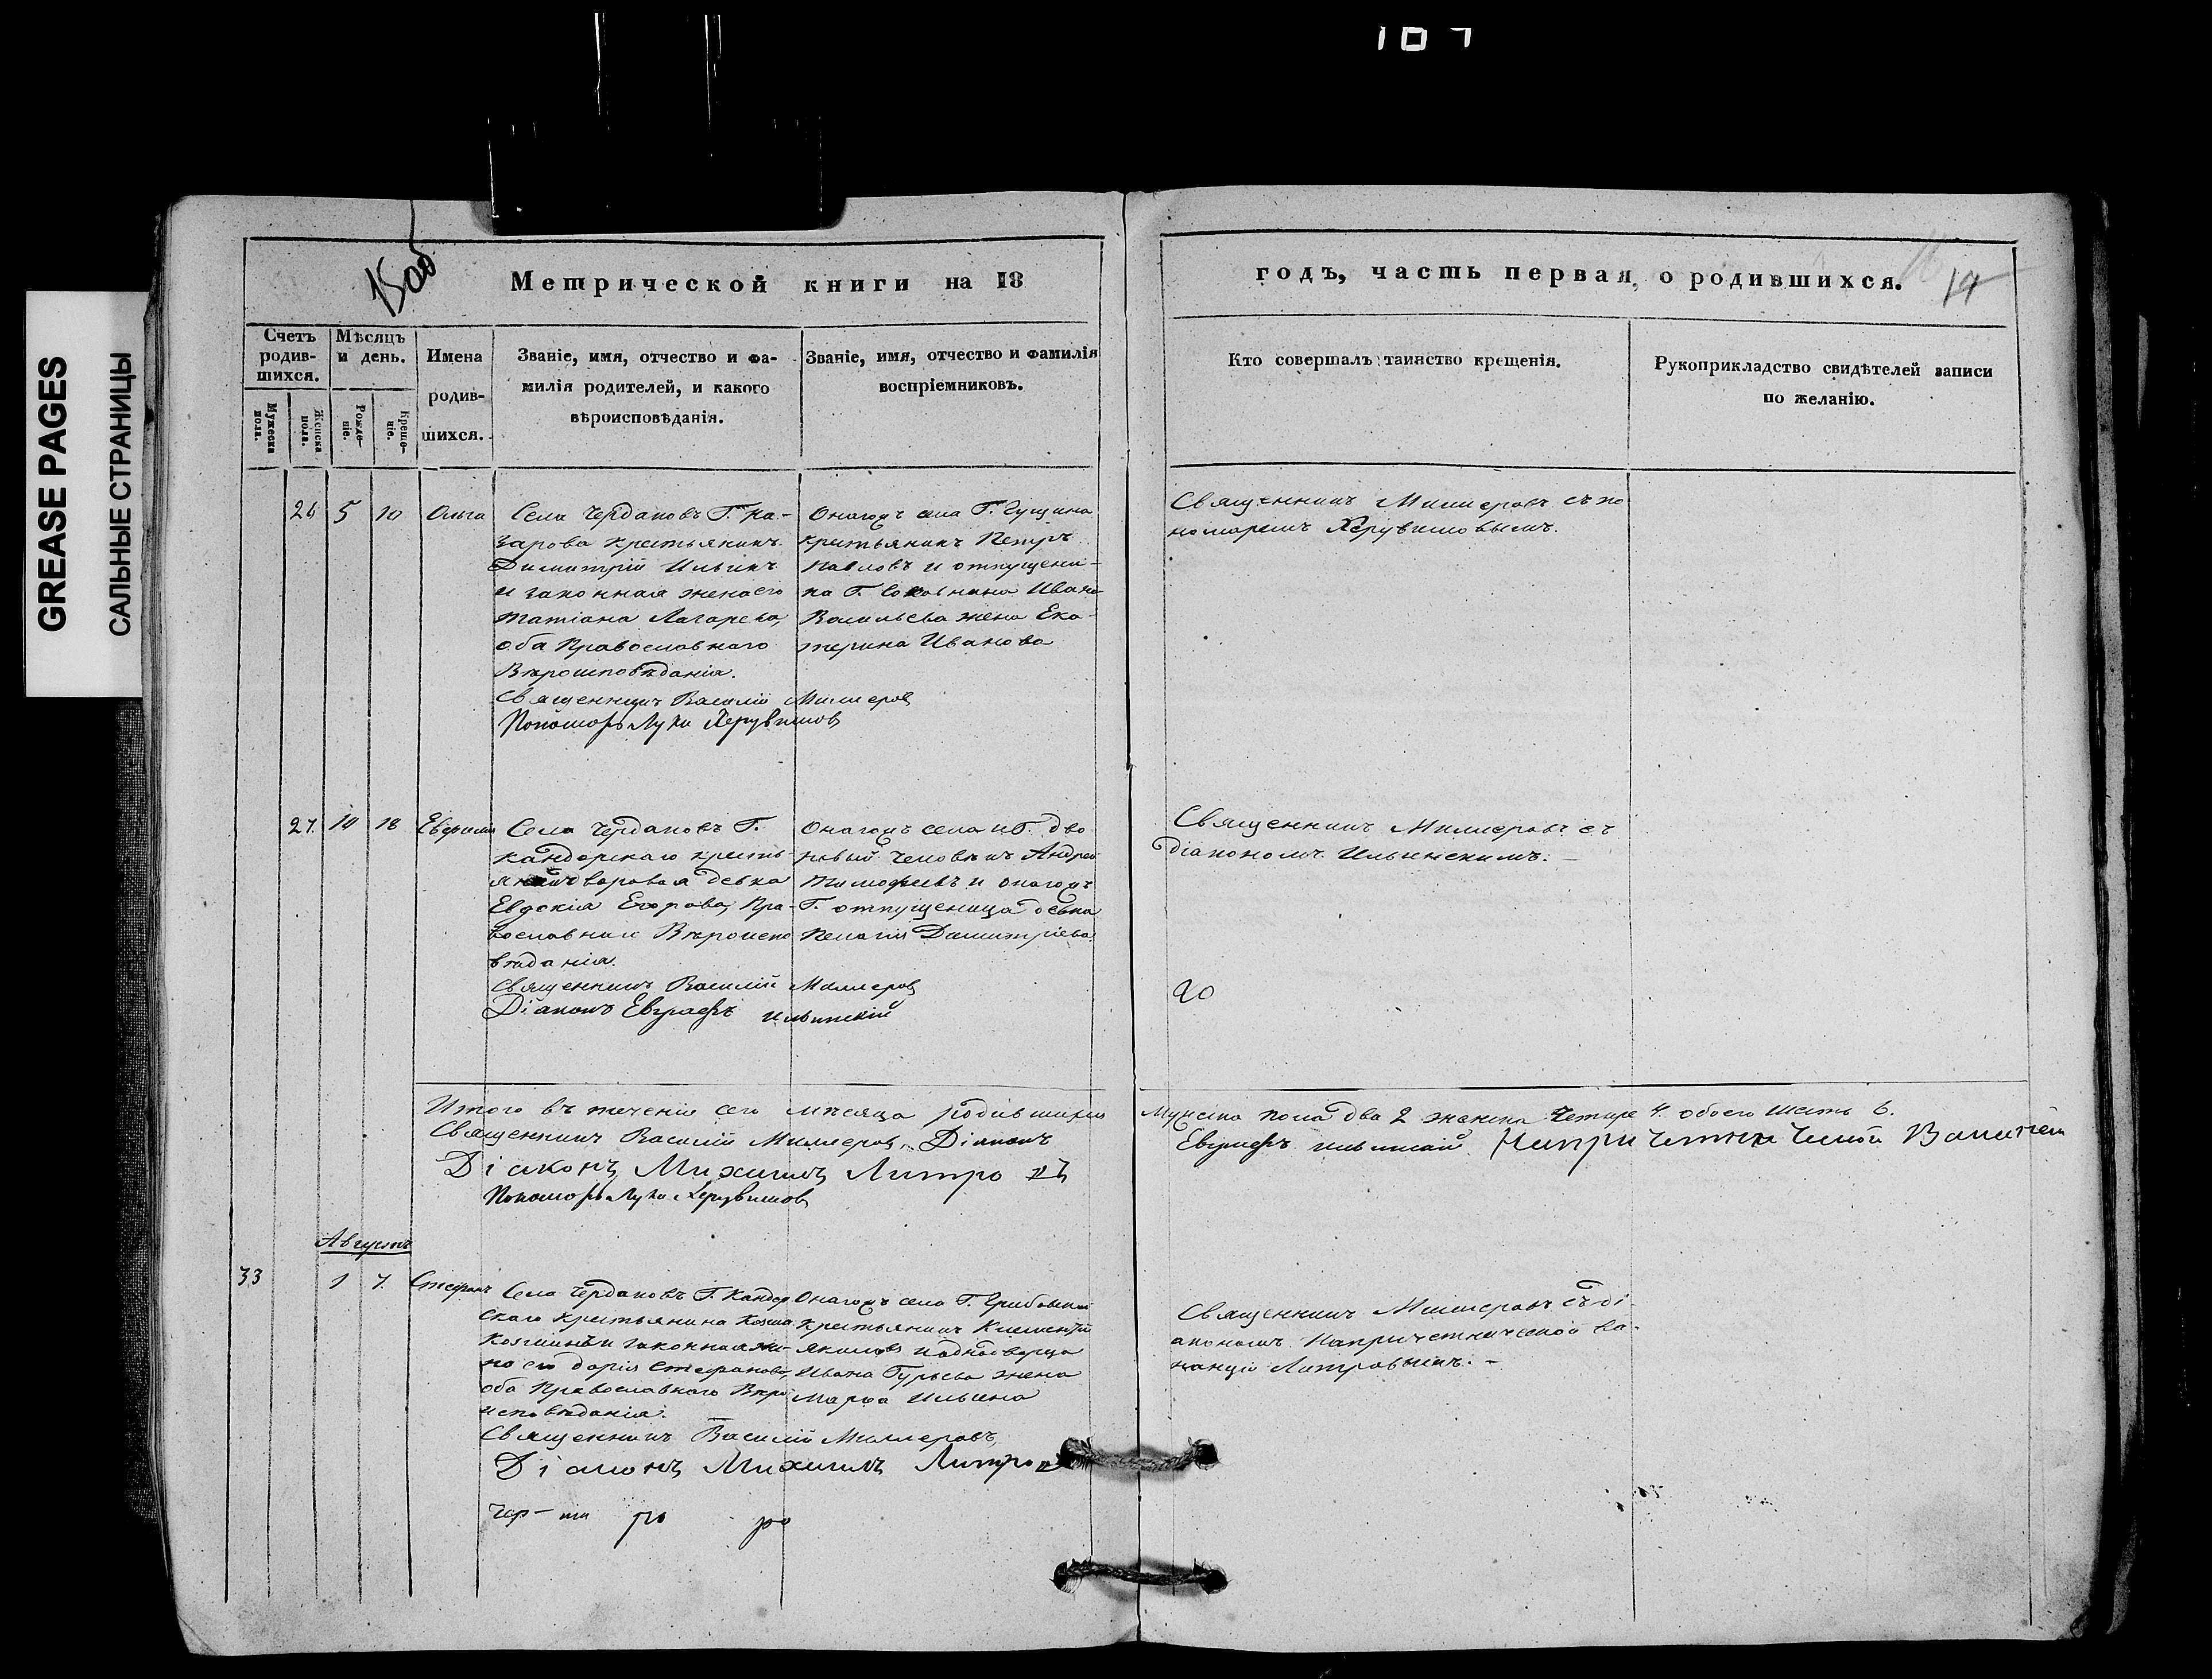 107
GREASE PAGES
САЛЬНЫЕ СТРАНИЦЫ
Метрической книги на 18
годъ, часть первая, о родившихся.
19
Счетъ родив-шихся.
Мужеска пола.
Женска пола.
Мѣсяцъ и день.
Рожде-ніе.
Креще-ніе.
Имена родив-шихся.
Званіе, имя, отчество и фа-
милія родителей, и какого
вѣроисповѣданія.
Званіе, имя, отчество и фамилія
воспріемниковъ.
Кто совершалъ таинство крещенія.
Рукоприкладство свидѣтелей записи
по желанію.
26 5 10 Ольга
Села Чердаковъ Г. На-
зарова крестьянинъ
Димитрій Ильинъ
и законная жена его
Татіана Лазарева,
оба Православнаго
Вѣроисповѣданія.
Священникъ Василій Миллеровъ
Пономарь Лука Херувимовъ
Онагожъ села Г. Гущина
крестьянинъ Петръ
Павловъ и отпущени-
ка Г. Ивана
Васильева жена Ека-
терина Иванова
Священникъ Миллеровъ съ по
номаремъ Херувимовымъ.
27. 14 18 Евфимія
Села Чердаковъ Г.
Кандорскаго кресть-
дворовая девка
Евдокія Егорова, Пра-
вославнаго Вѣроиспо
вѣданія.
Священникъ Василій Миллеровъ
Діаконъ Евграфъ Ильинскій
Онагожъ села и Г. дво
ровый человѣкъ Андрей
Тимофеевъ и онагожъ
Г. отпущеница девка
Пелагія Димитріева.
Священникъ Миллеровъ съ
діакономъ Ильинскимъ.
20
Итого въ теченіи сего мѣсяца родившихся Мужска пола два 2 женска Четыре 4. обоего шесть 6.
Священникъ Василій Миллеровъ, Діаконъ Евграфъ Ильинскій На причетнической Ваканціи
Діаконъ Михаилъ Литровъ
Пономарь Лука Херувимовъ
Августъ
33 1 7. Стефанъ
Села Чердаковъ Г. Кандор
скаго Крестьянина Козма
Козминъ и законная же-
на его Дарія Стефанова,
оба Православнаго Вѣро
исповѣданія.
Священникъ Василій Миллеровъ,
Діаконъ Михаилъ Литровъ
Онагожъ села Г. Грибовской
Крестьянинъ Климентій
Якимовъ и однодворца
Ивана Гурьева жена
Марѳа Ильина
Священникъ Миллеровъ съ ді-
акономъ На причетнической ва-
канціи Литровымъ. -